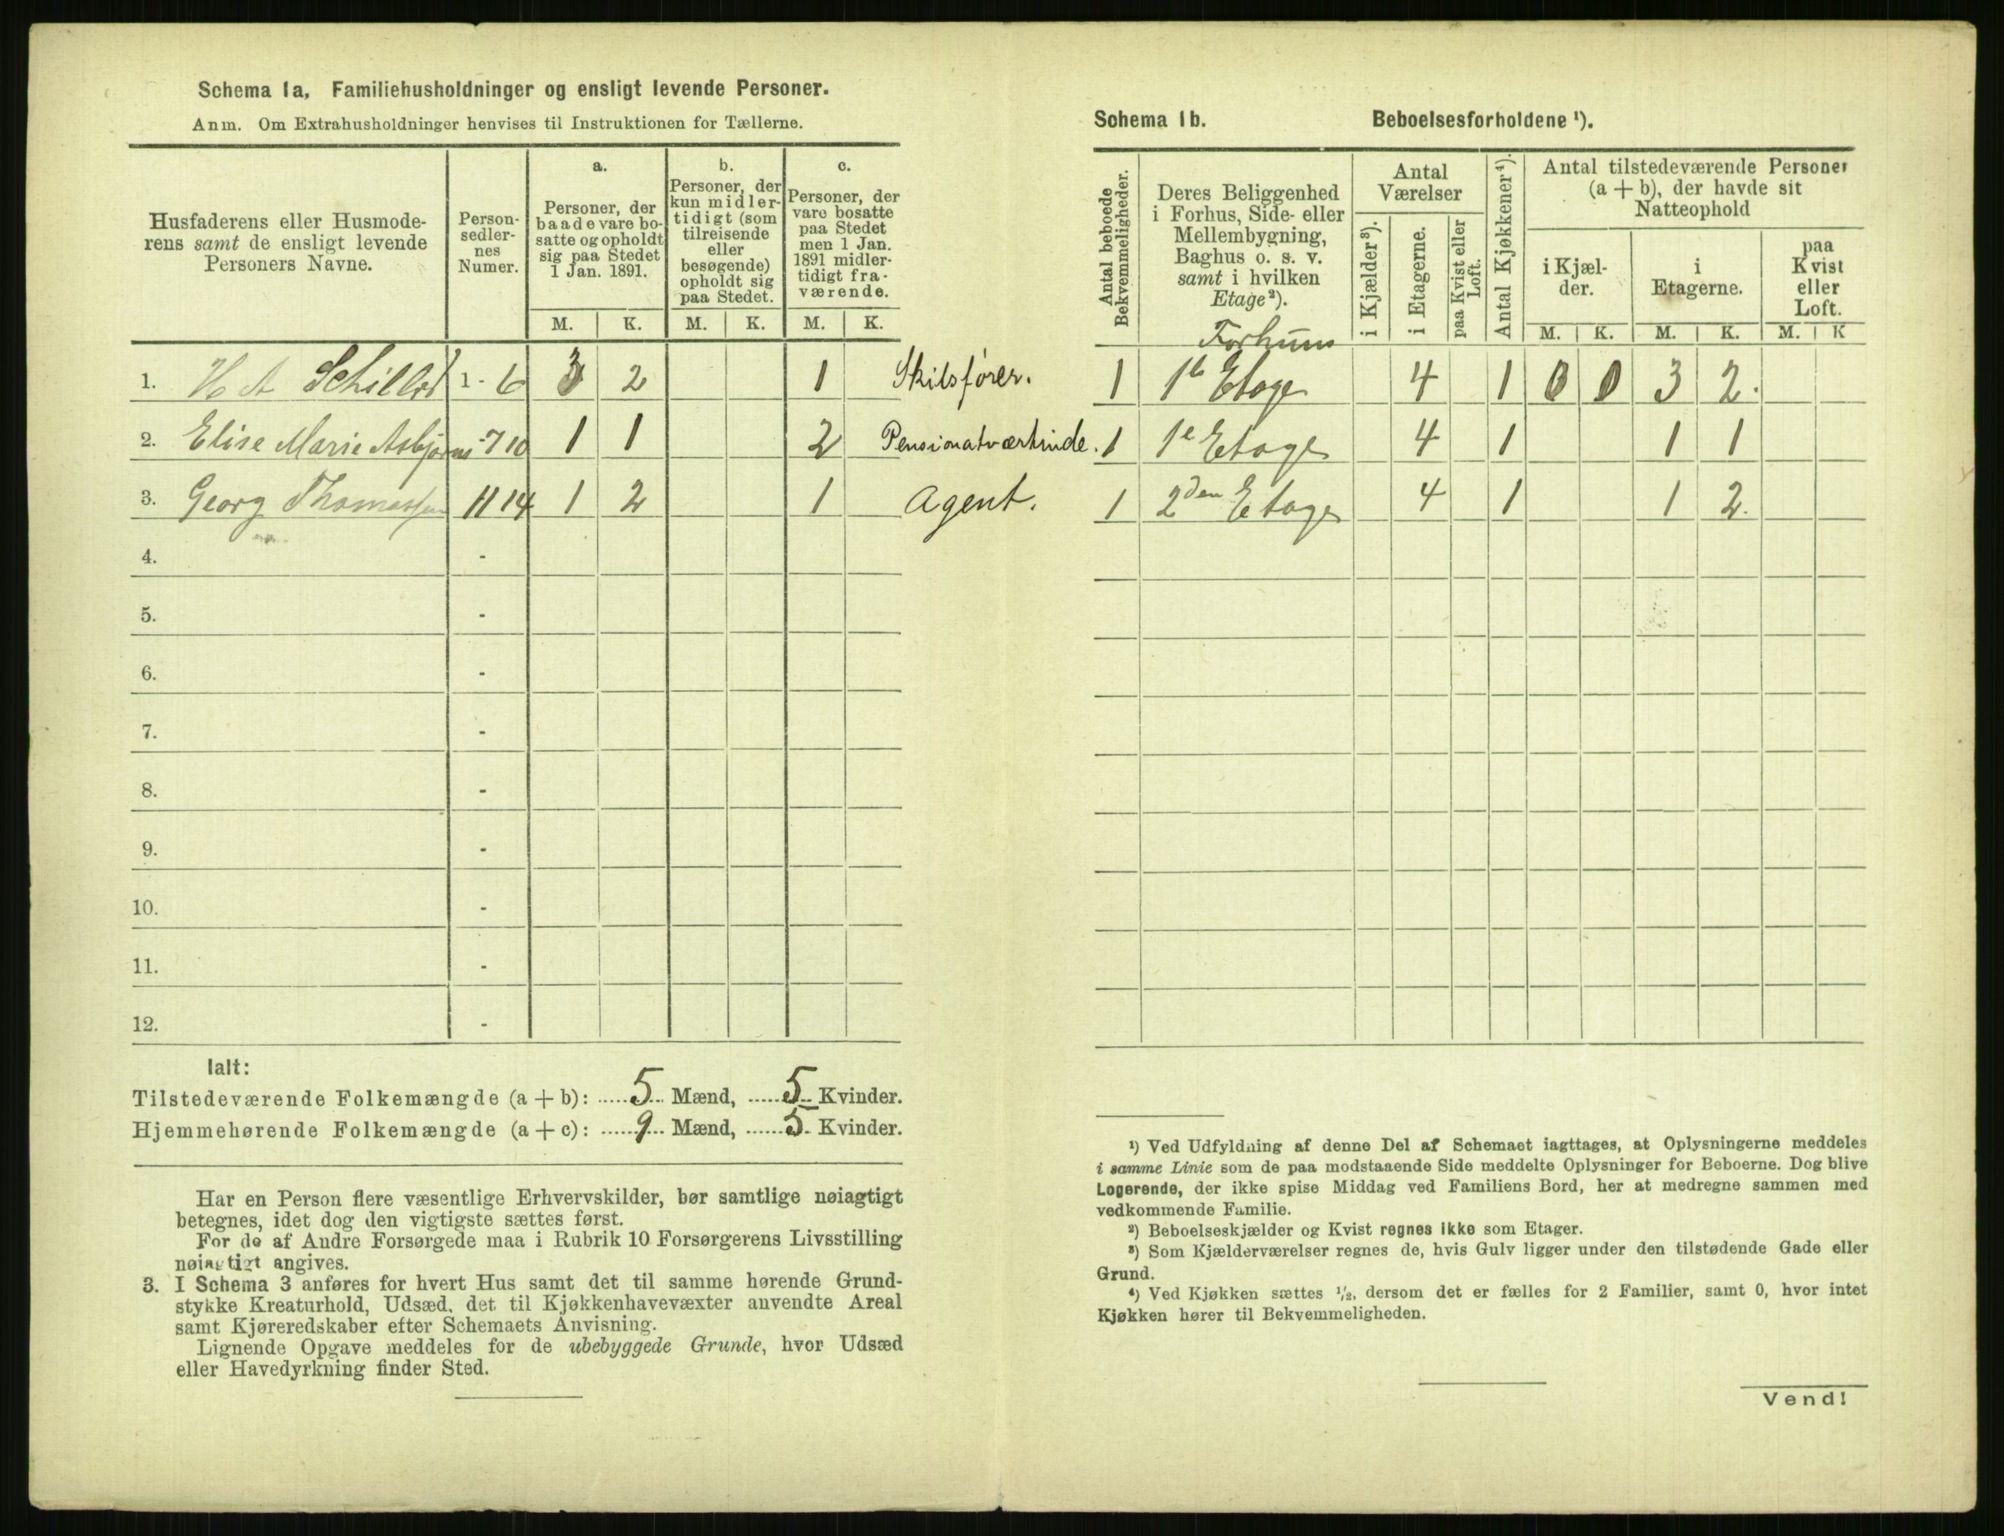 Schema 1a, Familiehusholdninger og ensligt levende Personer.
Anm. Om Extrahusholdninger henvises til Instruktionen for Tællerne.
Husfaderens eller Husmode-
rens samt de ensligt levende
Personers Navne.
Person-
sedler-
nes
Numer.
a.
Personer, der
baade vare bo-
satte og opholdt
sig paa Stedet
1 Jan. 1891.
b.
Personer, der
kun midler-
tidigt (som
tilreisende
eller
besøgende)
opholdt sig
paa Stedet.
c.
Personer, der
vare bosatte
paa Stedet
men 1 Jan.
1891 midler-
tidigt fra-
værende.
M. K. M. K. M. K.
1. H A 1 - 6 3 2 1 Skibsfører.
2. Elise Marie Asbjørns - 7 10 1 1 2 Pensionatværtinde.
3. Georg Thomassen 11 14 1 2 1 Agent.
4. -
5. -
6. -
7. -
8. -
9. -
10. -
11. -
12. -
Ialt:
Tilstedeværende Folkemængde (a + b): 5 Mænd, 5 Kvinder.
Hjemmehørende Folkemængde (a + c): 9 Mænd, 5 Kvinder.
Har en Person flere væsentlige Erhvervskilder, bør samtlige nøiagtigt
betegnes, idet dog den vigtigste sættes først.
For de af Andre Forsørgede maa i Rubrik 10 Forsørgerens Livsstilling
nøiagtigt angives.
3. I Schema 3 anføres for hvert Hus samt det til samme hørende Grund-
stykke Kreaturhold, Udsæd, det til Kjøkkenhavevæxter anvendte Areal
samt Kjøreredskaber efter Schemaets Anvisning.
Lignende Opgave meddeles for de ubebyggede Grunde, hvor Udsæd
eller Havedyrkning finder Sted.
Schema 1b. Beboelsesforholdene ¹).
Antal beboede
Bekvemmeligheder.
Deres Beliggenhed
i Forhus, Side- eller
Mellembygning,
Baghus o. s. v.
samt i hvilken
Etage ²).
Antal
Værelser
i Kjælder ³).
i Etagerne.
paa Kvist eller
Loft.
Antal Kjøkkener ⁴).
Antal tilstedeværende Personer
(a + b), der havde sit
Natteophold
i Kjæl-
der.
i
Etagerne.
paa
Kvist
eller
Loft.
M. K. M. K. M. K
Forhuus
1 1e Etage 4 1 0 0 3 2.
1 1e Etage 4 1 1 1
1 2den Etage 4 1 1 2.
¹) Ved Udfyldning af denne Del af Schemaet iagttages, at Oplysningerne meddeles
i samme Linie som de paa modstaaende Side meddelte Oplysninger for Beboerne. Dog blive
Logerende, der ikke spise Middag ved Familiens Bord, her at medregne sammen med
vedkommende Familie.
²) Beboelseskjælder og Kvist regnes ikke som Etager.
³) Som Kjælderværelser regnes de, hvis Gulv ligger under den tilstødende Gade eller
Grund.
⁴) Ved Kjøkken sættes ¹/₂, dersom det er fælles for 2 Familier, samt 0, hvor intet
Kjøkken hører til Bekvemmeligheden.
Vend!